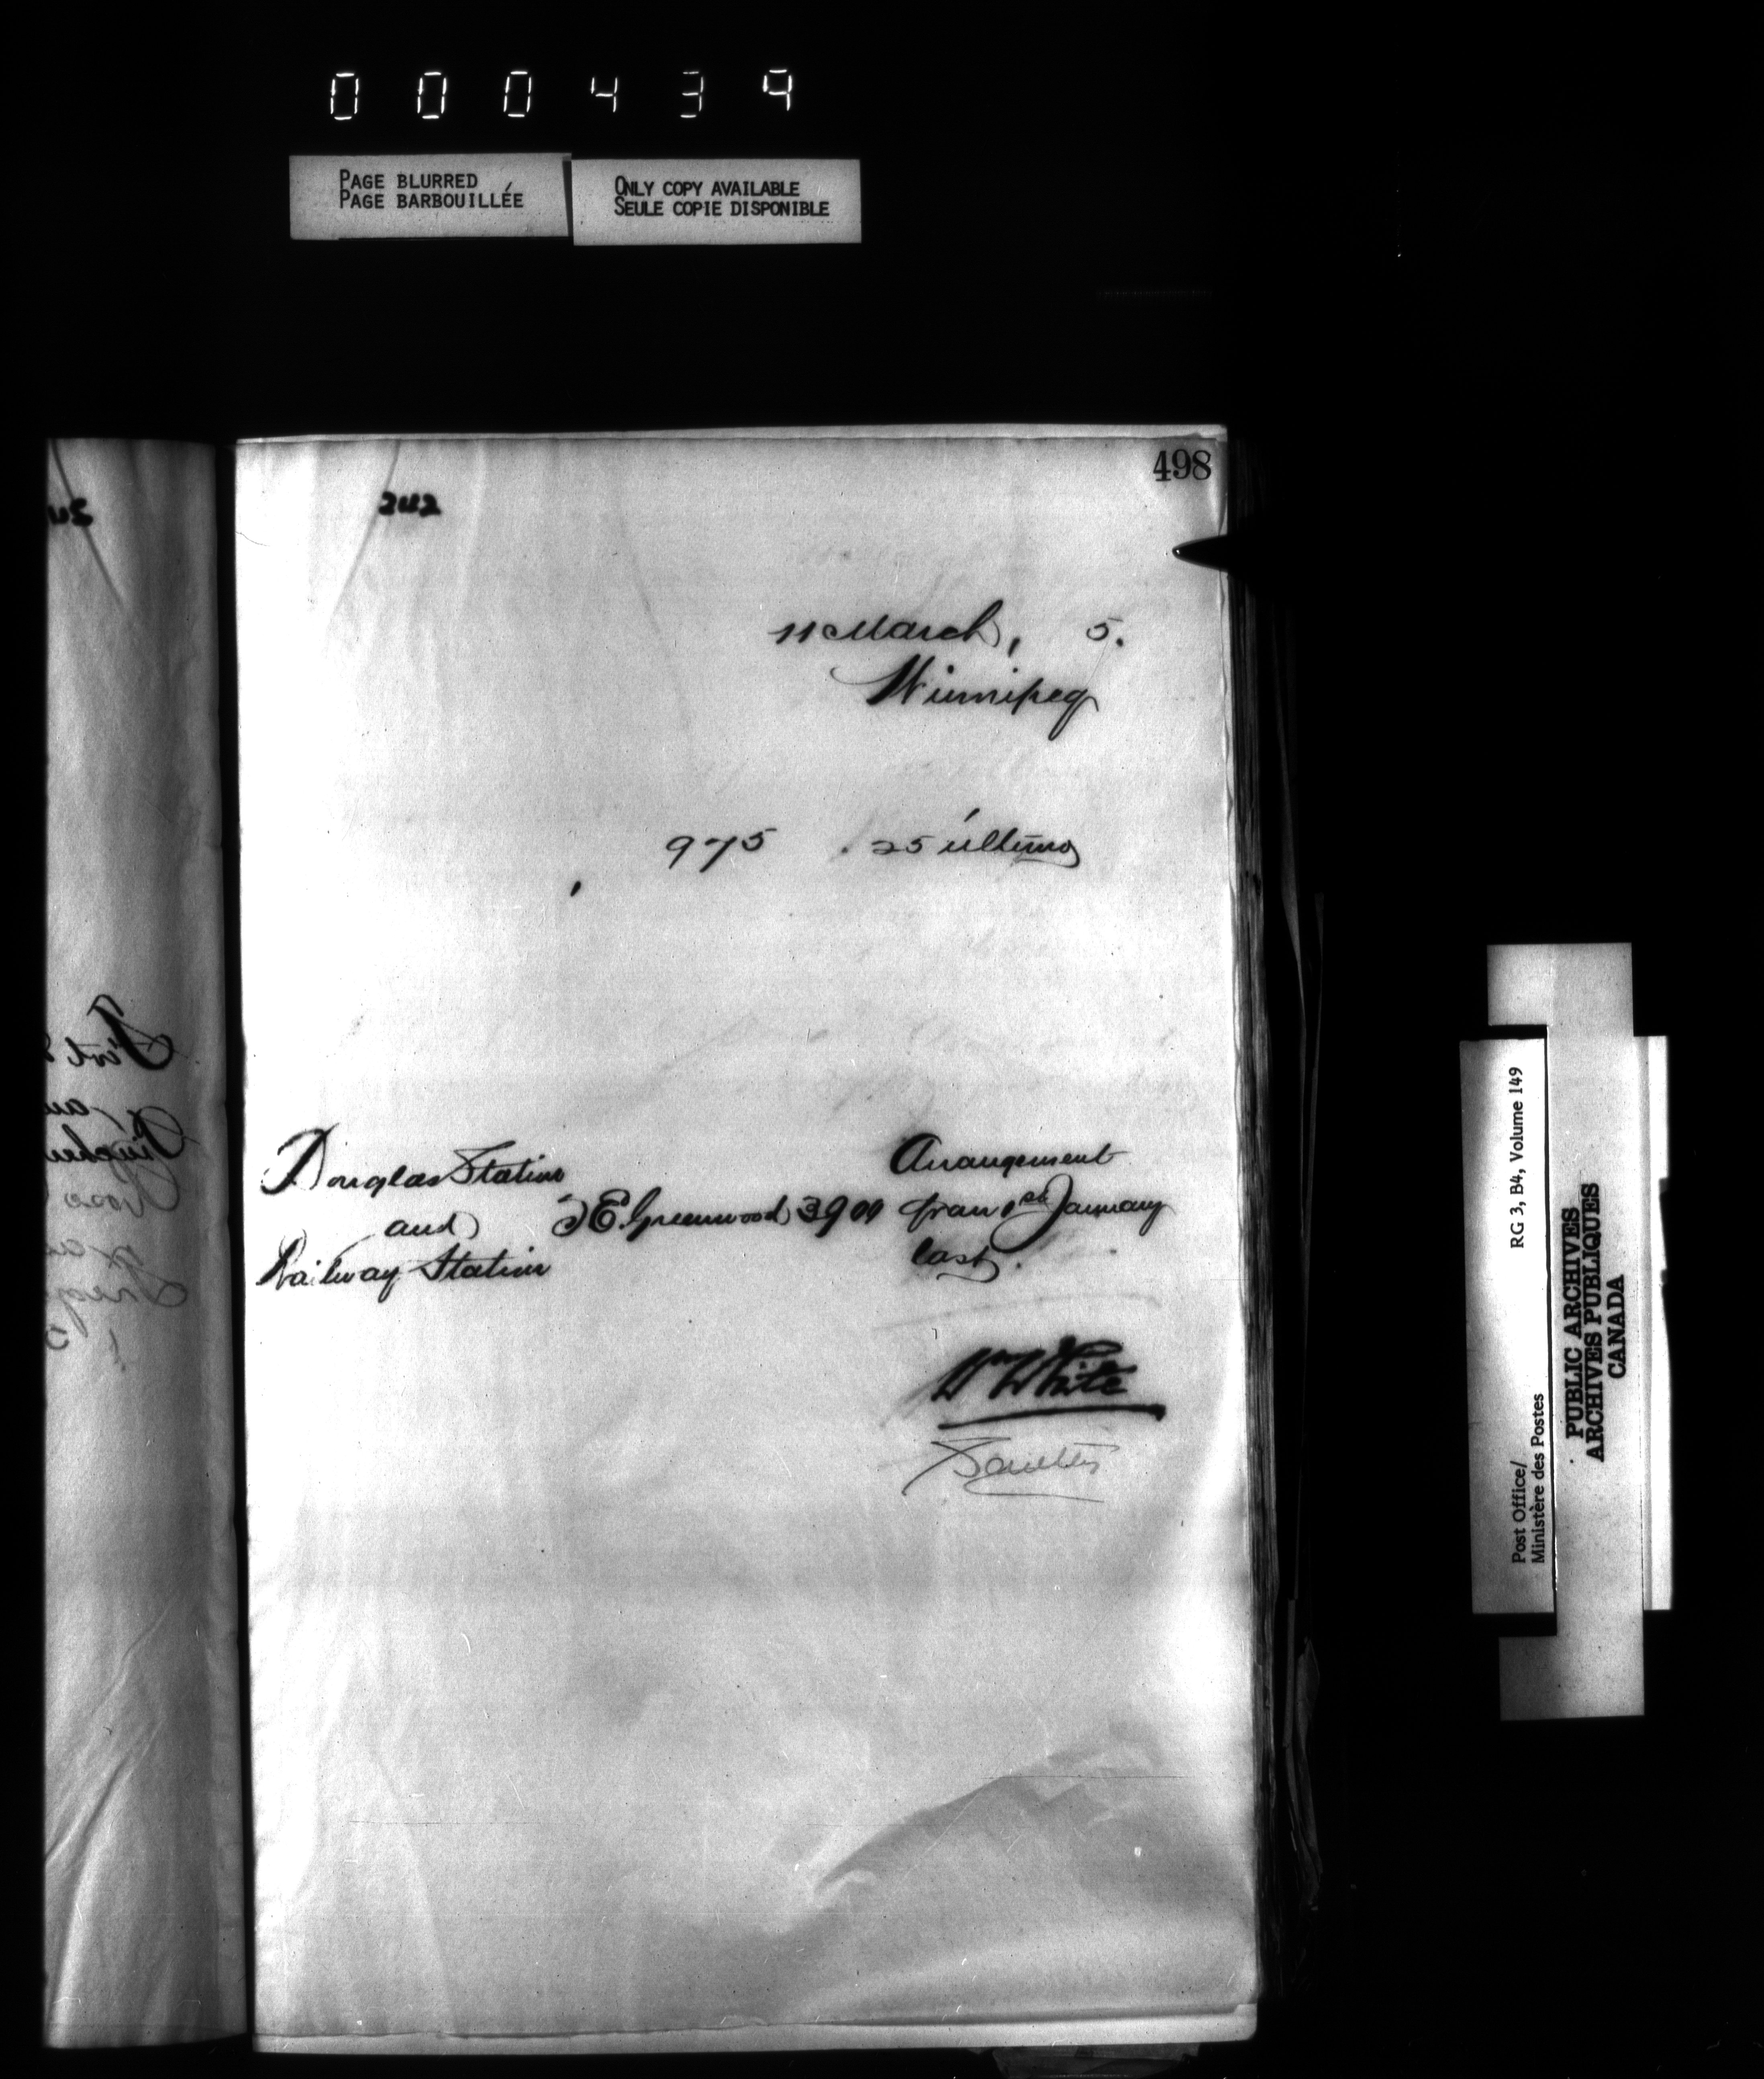 000439
PAGE BLURRED
PAGE BARBOUILLÉE
ONLY COPY AVAILABLE
SEULE COPIE DISPONIBLE
498
242
11 March, 5.
Winnipeg
975 25 ultimo
Douglas Station
and
Railway Station
E. Greenwood 39 00
Arrangement
from 1st January
last.
Wm White
RG 3, B4, Volume 149
Post Office/
Ministère des Postes
PUBLIC ARCHIVES
ARCHIVES PUBLIQUES
CANADA